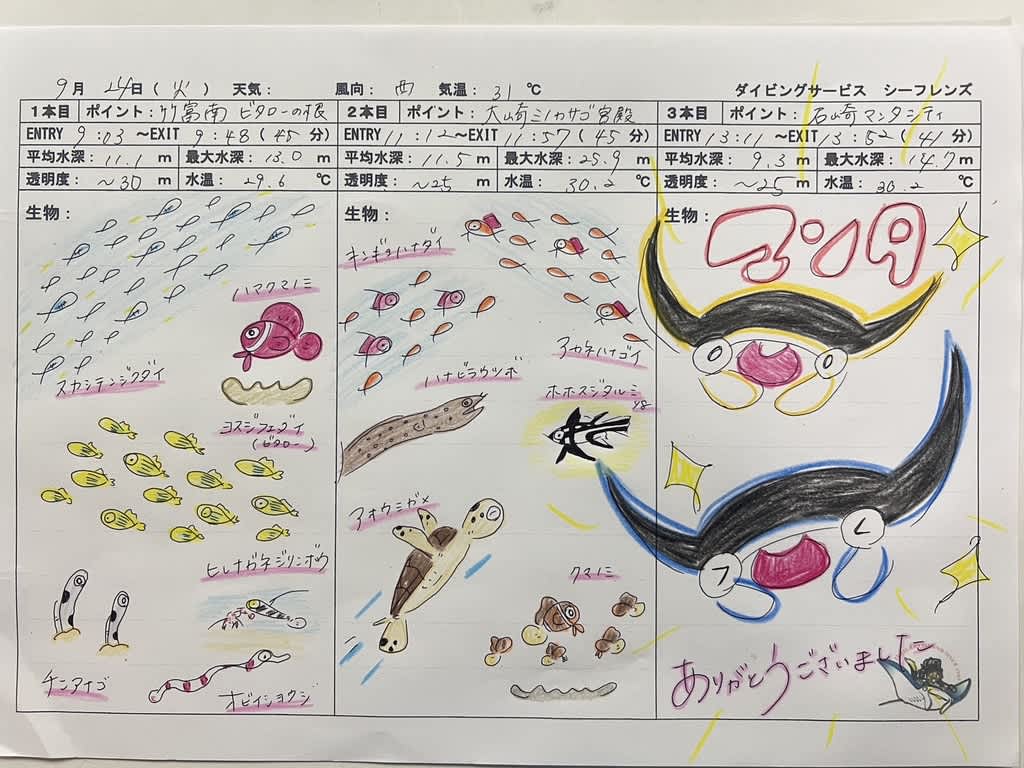 9月 24日(火) 天気: 風向: 西 気温: 31 ℃ ダイビングサービス シーフレンズ
1本目 ポイント: 竹富南 ビタローの根
ENTRY 9:03 ~EXIT 9:48 (45 分)
平均水深: 11.1 m 最大水深: 13.0 m
透明度: ~30 m 水温: 29.6 ℃
生物:
ハマクマノミ
スカシテンジクダイ
ヨスジフエダイ
(ビタロー)
ヒレナガネジリンボウ
チンアナゴ
オビイシヨウジ
2本目 ポイント: 大崎ミノカサゴ宮殿
ENTRY 11:12~EXIT 11:57 (45 分)
平均水深: 11.5 m 最大水深: 25.9 m
透明度: ~25 m 水温: 30.2 ℃
生物:
キンギョハナダイ
アカネハナゴイ
ハナビラウツボ
ホホスジタルミ
yg
アオウミガメ
クマノミ
3本目 ポイント: 石崎マンタシティ
ENTRY 13:11 ~EXIT 13:52 (41 分)
平均水深: 9.3 m 最大水深: 14.7 m
透明度: ~25 m 水温: 30.2 ℃
生物:
マンタ
ありがとうございました